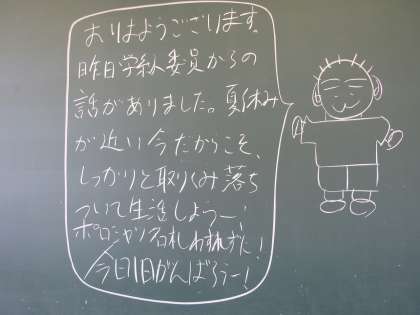 おはようございます。
昨日学級委員からの
話がありました。夏休み
が近い今だからこそ、
しっかりと取りくみ落ち
ついて生活しようー!
ポロシャツ名札わすれずに!
今日1日がんばろうー!